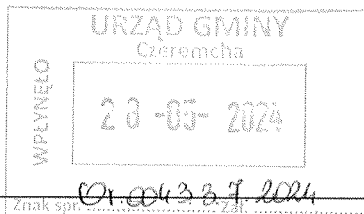 URZĄD GMINY
Czeremcha
WPŁYNĘŁO
20 -05- 2024
Znak spr. Or. 0043.3.7.2024 Zał.